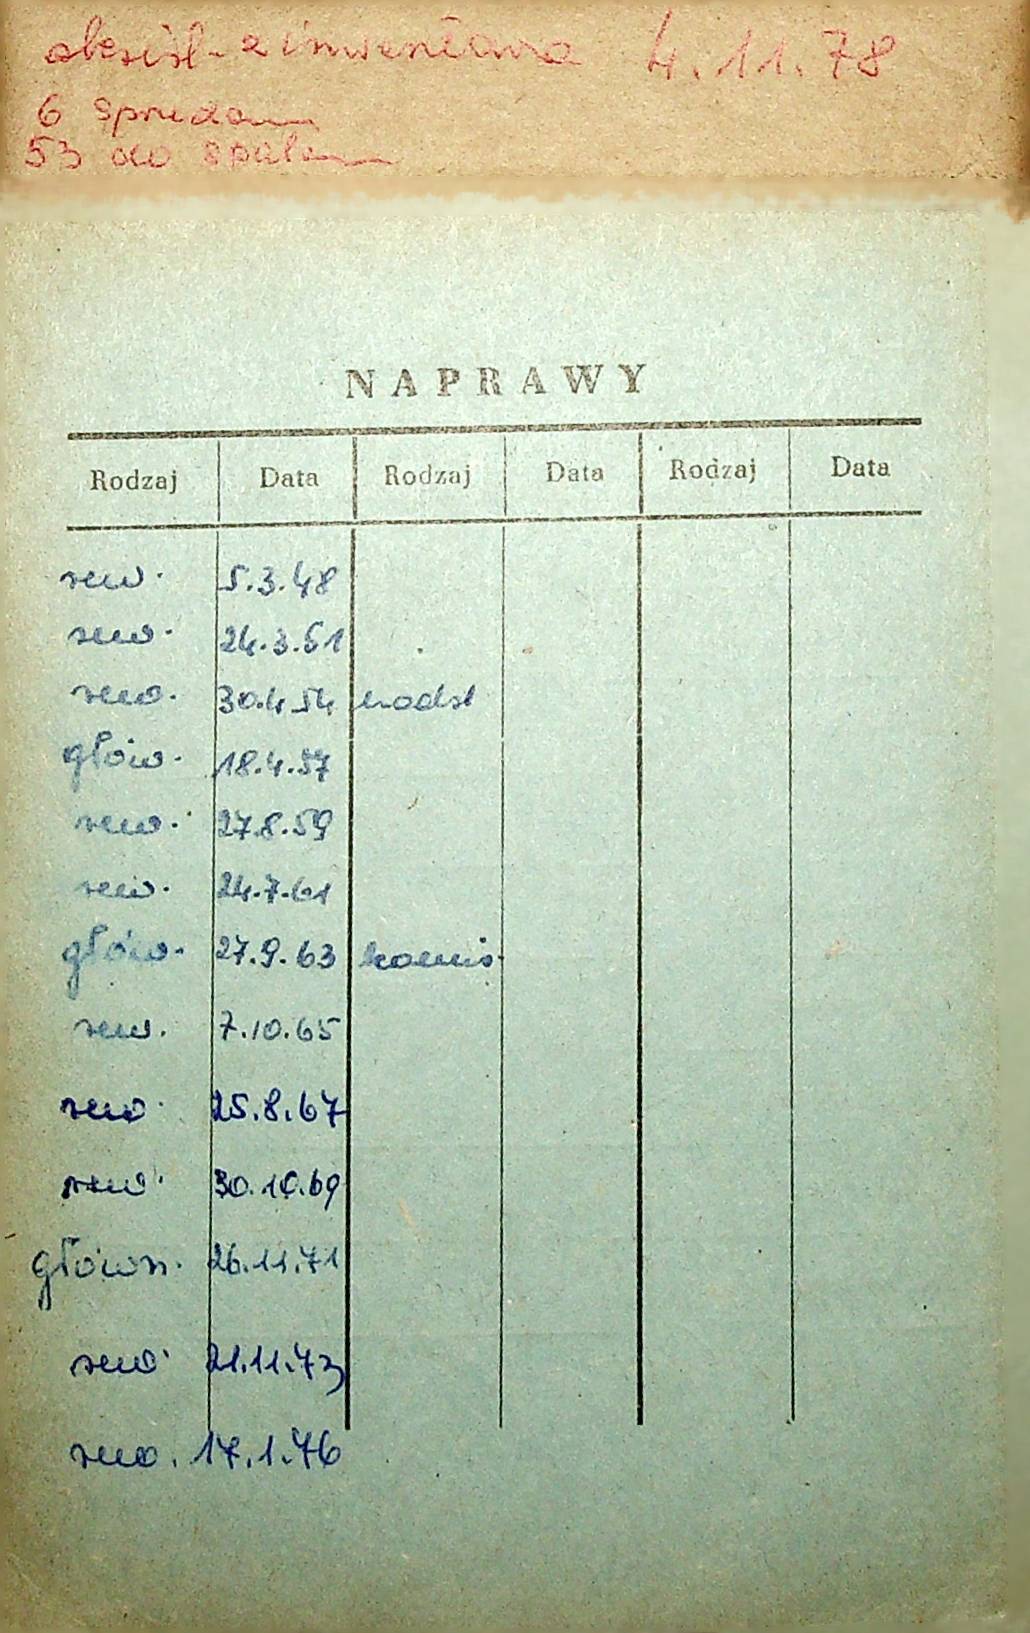 z inwentarza 4.11.78
6 sprzedano
53 do
NAPRAWY
Rodzaj Data Rodzaj Data Rodzaj Data
rew. 5.3.48
rew. 24.3.51
rew. 30.4.54
głów. 18.4.57
rew. 27.8.59
rew. 24.7.61
głów. 27.9.63 komis.
rew. 7.10.65
rew. 25.8.67
rew. 30.10.69
główn. 26.11.71
rew. 21.11.73
rew. 17.1.76